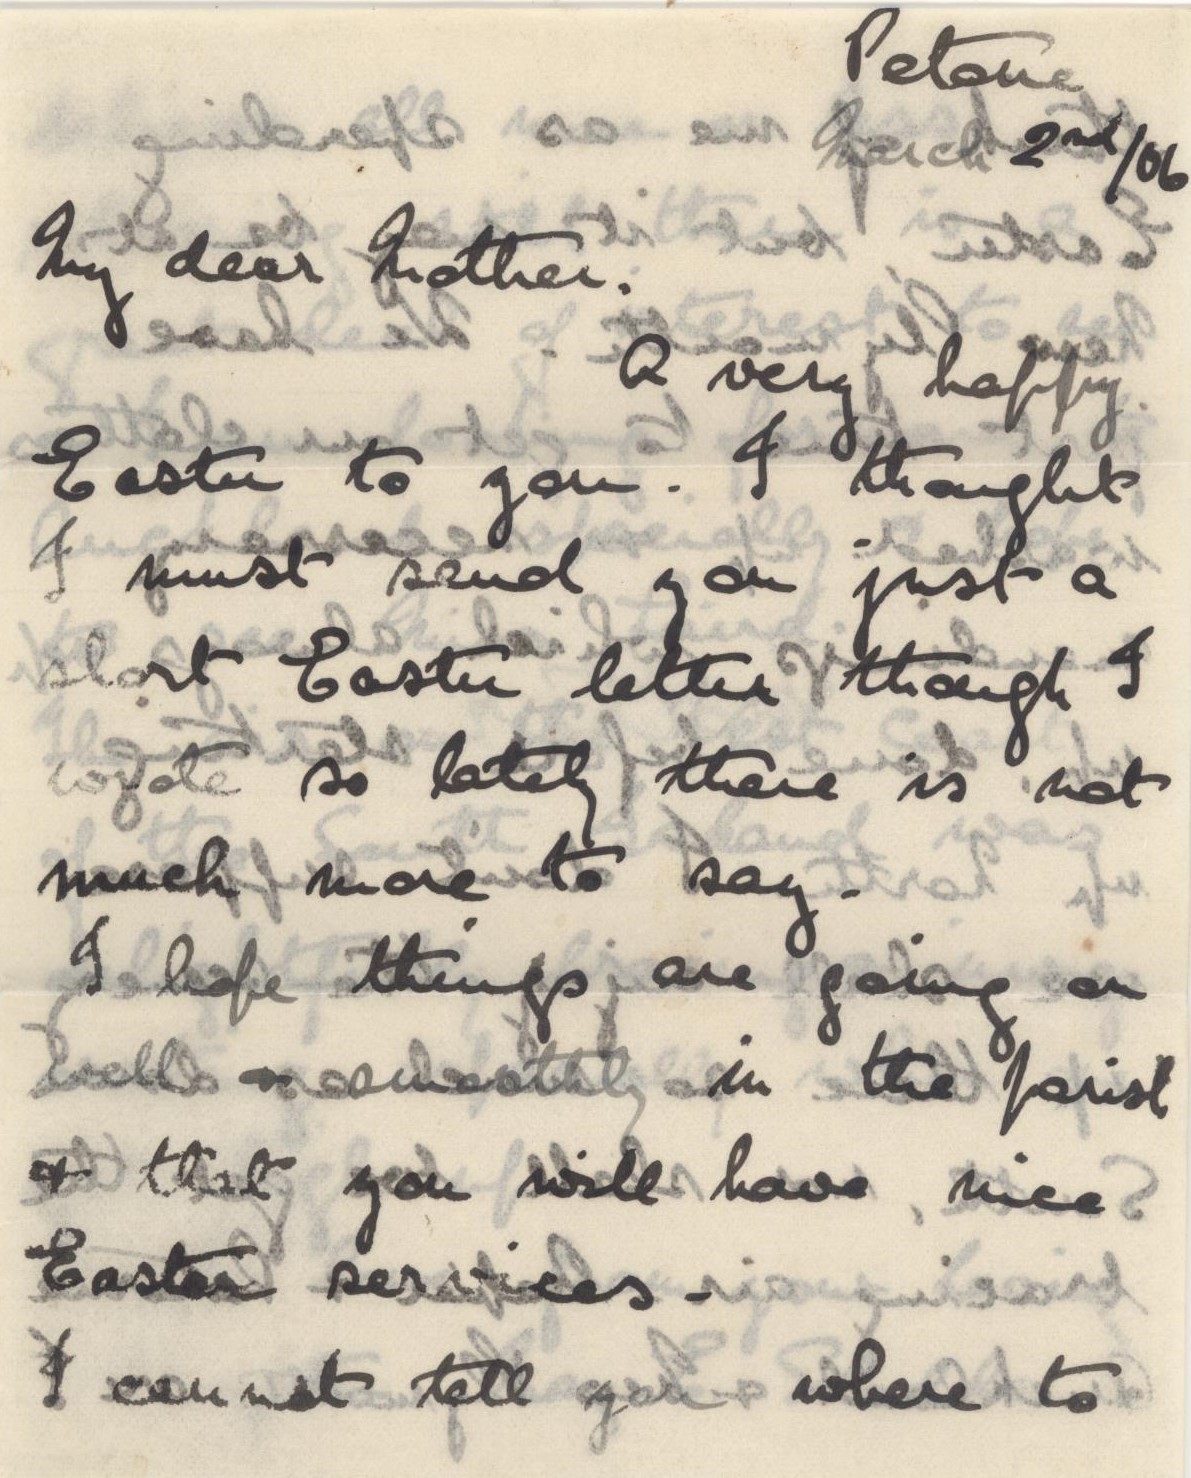 Petone
March 2nd/06
My dear Mother.
A very happy
Easter to you. I thought
I must send you just a
short Easter letter though I
wrote so lately there is not
much more to say.
I hope things are going on
well & smoothly in the parish
& that you will have nice
Easter services -
I cannot tell you where to